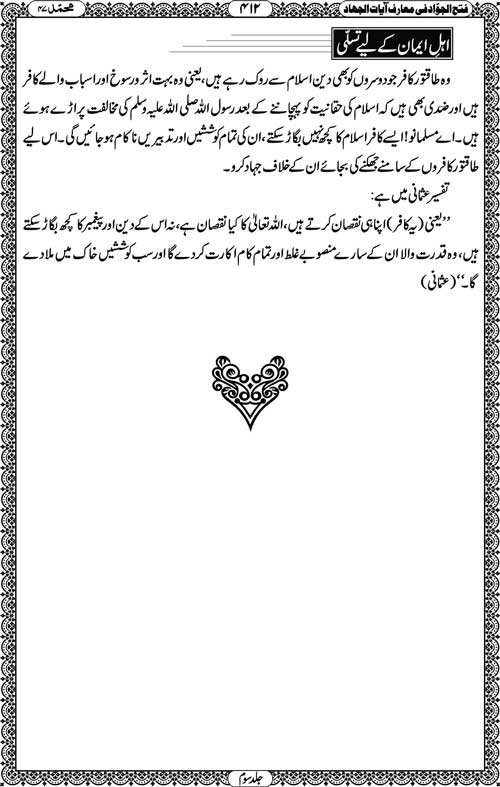 فتح الجوّاد فی معارف آیات الجهاد
۴۱۲
محمّد ۴۷
اہلِ ایمان کے لیے تسلّی
وہ طاقتور کافر جو دوسروں کو بھی دین اسلام سے روک رہے ہیں، یعنی وہ بہت اثر ورسوخ اور اسباب والے کافر
ہیں اور ضدی بھی ہیں کہ اسلام کی حقانیت کو پہچاننے کے بعد رسول اللہ صلی اللہ علیہ وسلم کی مخالفت پر اڑے ہوئے
ہیں۔ اے مسلمانو! ایسے کافر اسلام کا کچھ نہیں بگاڑ سکتے، ان کی تمام کوششیں اور تدبیریں ناکام ہو جائیں گی۔ اس لیے
طاقتور کافروں کے سامنے جھکنے کی بجائے ان کے خلاف جہاد کرو۔
تفسیر عثمانی میں ہے:
’’یعنی (یہ کافر) اپنا ہی نقصان کرتے ہیں، اللہ تعالیٰ کا کیا نقصان ہے، نہ اس کے دین اور پیغمبر کا کچھ بگاڑ سکتے
ہیں، وہ قدرت والا ان کے سارے منصوبے غلط اور تمام کام اکارت کر دے گا اور سب کوششیں خاک میں ملا دے
گا۔‘‘ (عثمانی)
جلد سوم